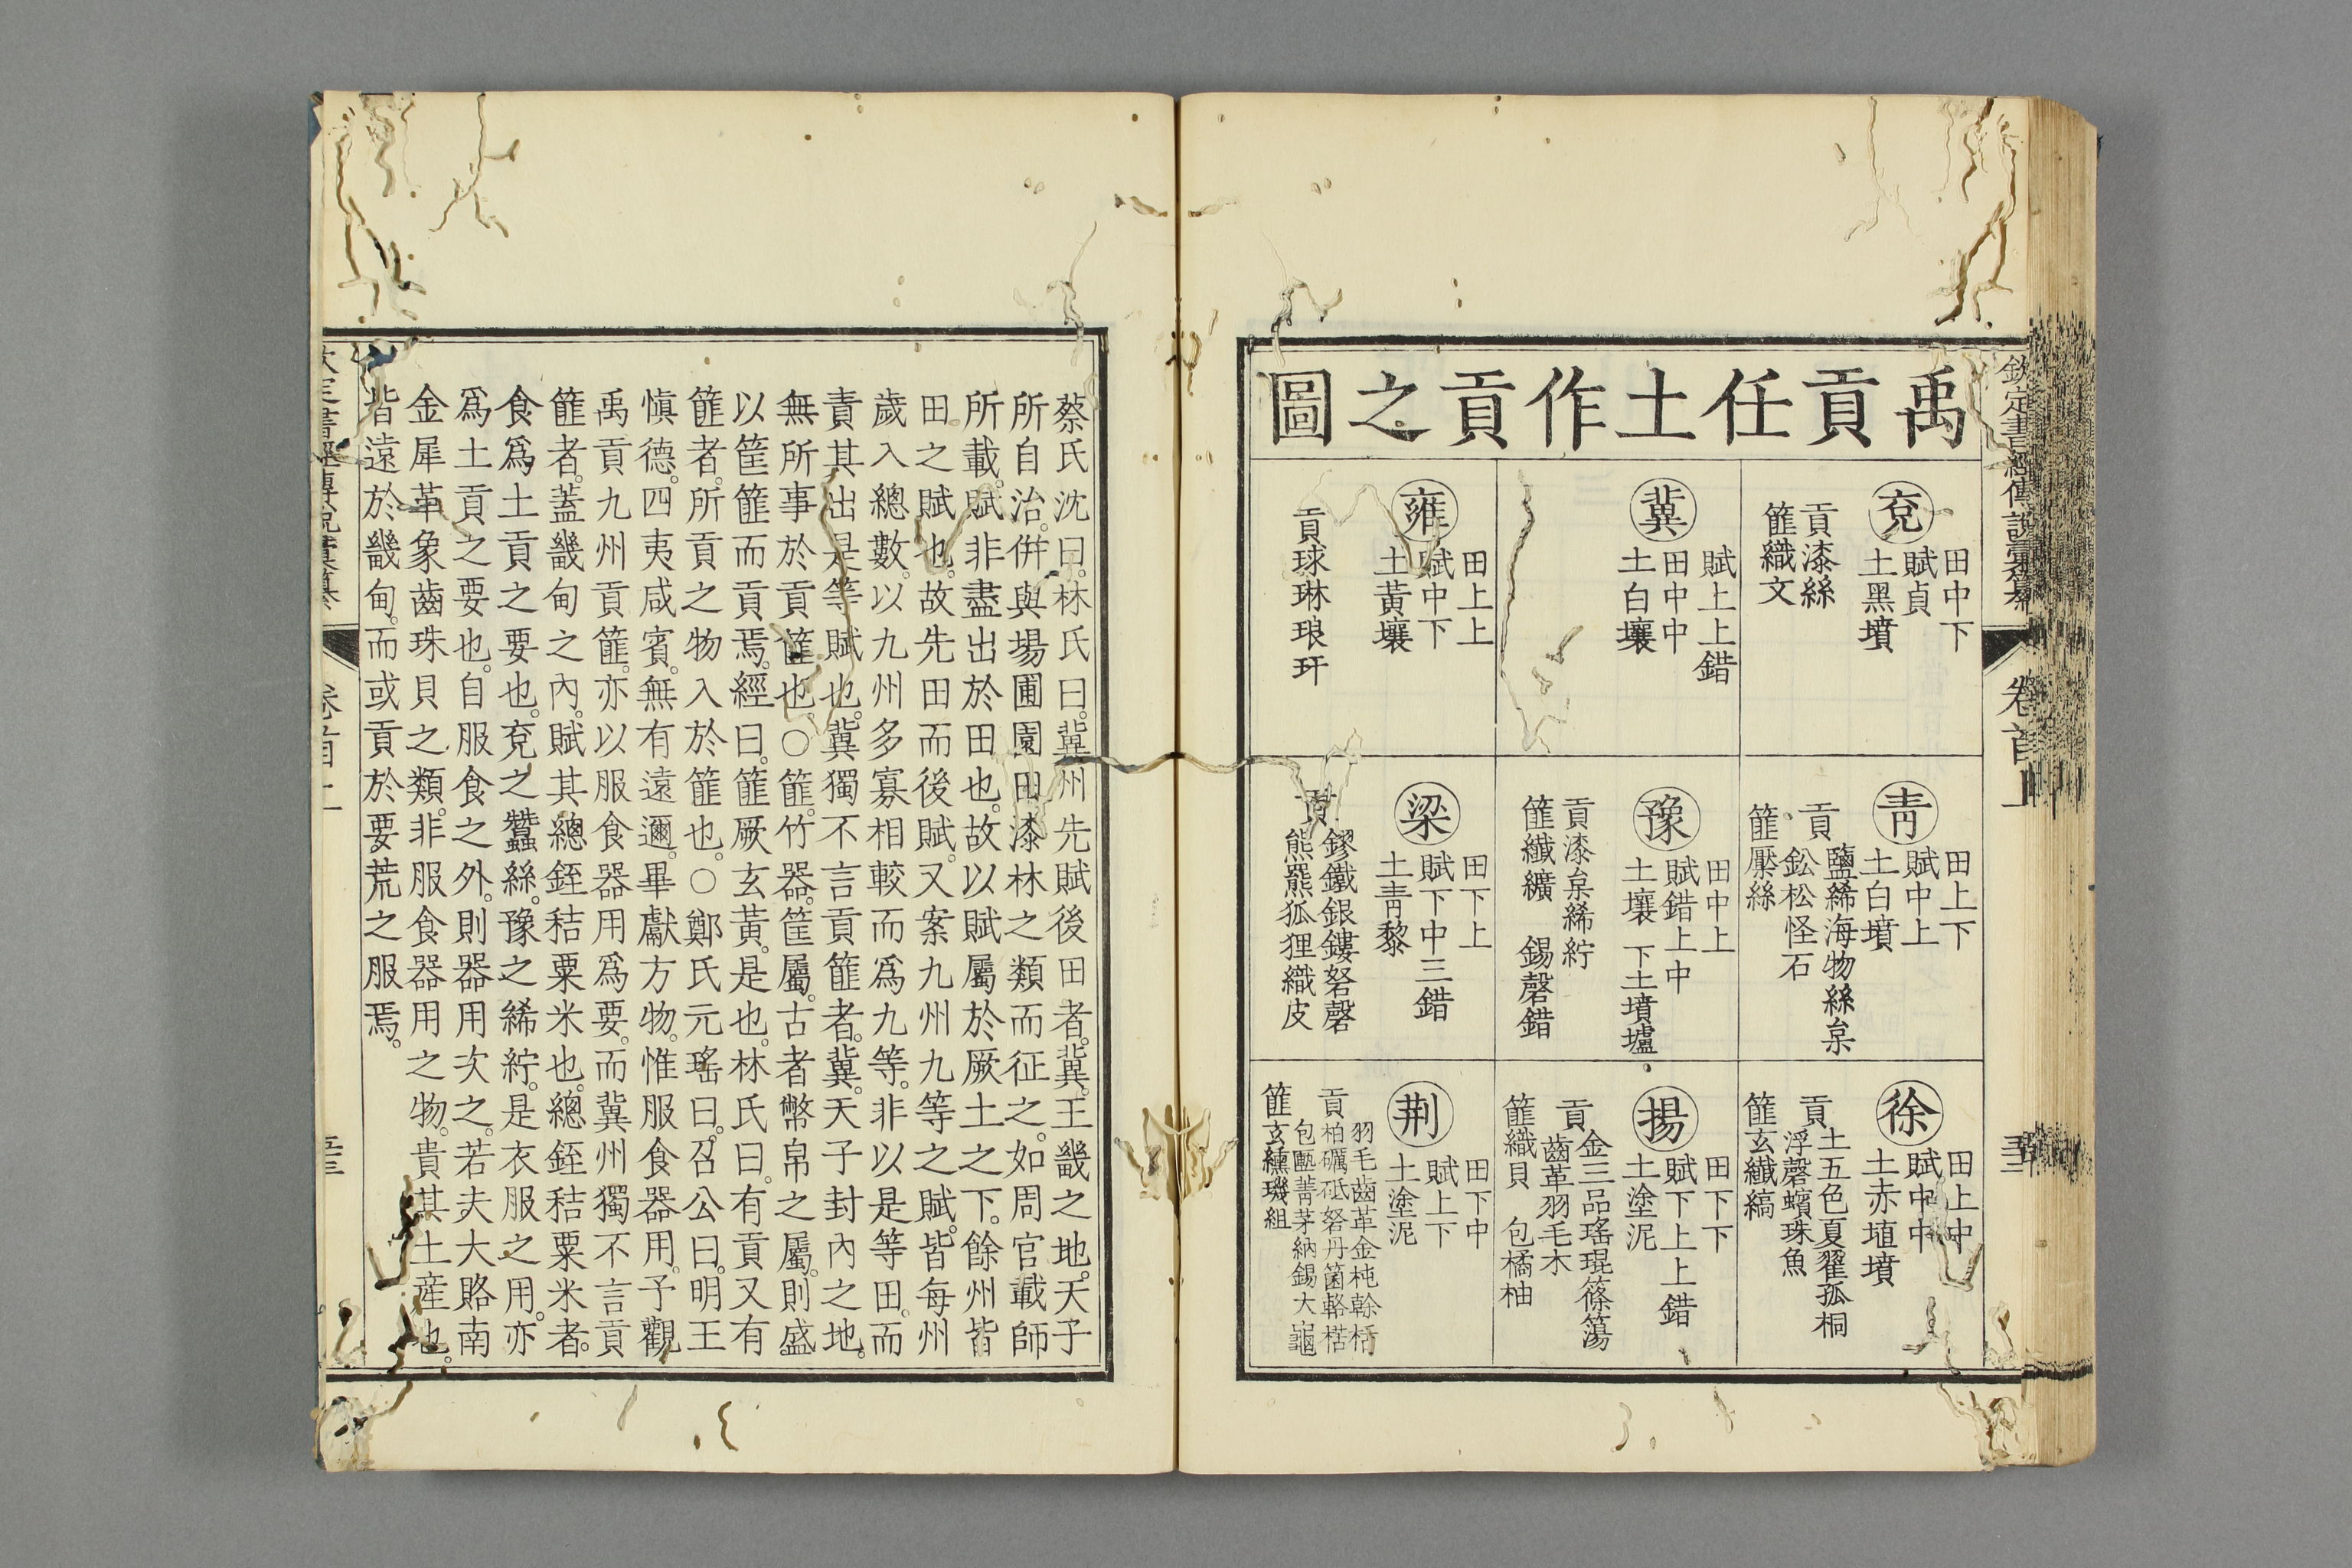 欽定書經傳說彙纂
卷首上
禹貢任土作貢之圖
兗
田中下
賦貞
土黑墳
貢漆絲
篚織文
冀
賦上上錯
田中中
土白壤
雍
田上上
賦中下
土黃壤
貢球琳琅玕
靑
田上下
賦中上
土白墳
貢
鹽絺海物絲枲
鈆松怪石
篚檿絲
豫
田中上
賦錯上中
土壤 下土墳壚
貢漆枲絺紵
篚纖纊 錫磬錯
梁
田下上
賦下中三錯
土靑黎
貢
鏐鐵銀鏤砮磬
熊羆狐狸織皮
徐
田上中
賦中中
土赤埴墳
貢
土五色夏翟孤桐
浮磬蠙珠魚
篚玄纖縞
揚
田下下
賦下上上錯
土塗泥
貢
金三品瑤琨篠簜
齒革羽毛木
篚織貝 包橘柚
荆
田下中
賦上下
土塗泥
貢
羽毛齒革金杶榦栝
柏礪砥砮丹箘簵楛
包匭菁茅納錫大龜
篚玄纁璣組
蔡氏沈曰。林氏曰。冀州先賦後田者。冀。王畿之地。天子
所自治。倂與場圃園田漆林之類而征之。如周官載師
所載。賦非盡出於田也。故以賦屬於厥土之下。餘州皆
田之賦也。故先田而後賦。又案九州九等之賦。皆每州
歲入總數。以九州多寡相較而爲九等。非以是等田。而
責其出是等賦也。冀獨不言貢篚者。冀。天子封內之地。
無所事於貢篚也。○篚。竹器。筐屬。古者幣帛之屬。則盛
以筐篚而貢焉。經曰。篚厥玄黃。是也。林氏曰。有貢又有
篚者。所貢之物入於篚也。○鄭氏元瑤曰。召公曰。明王
愼德。四夷咸賓。無有遠邇。畢獻方物。惟服食器用。予觀
禹貢九州貢篚。亦以服食器用爲要。而冀州獨不言貢
篚者。蓋畿甸之內。賦其總銍秸粟米也。總銍秸粟米者。
食爲土貢之要也。兗之蠶絲。豫之絺紵。是衣服之用。亦
爲土貢之要也。自服食之外。則器用次之。若夫大賂南
金犀革象齒珠貝之類。非服食器用之物。貴其土産也。
皆遠於畿甸。而或貢於要荒之服焉。